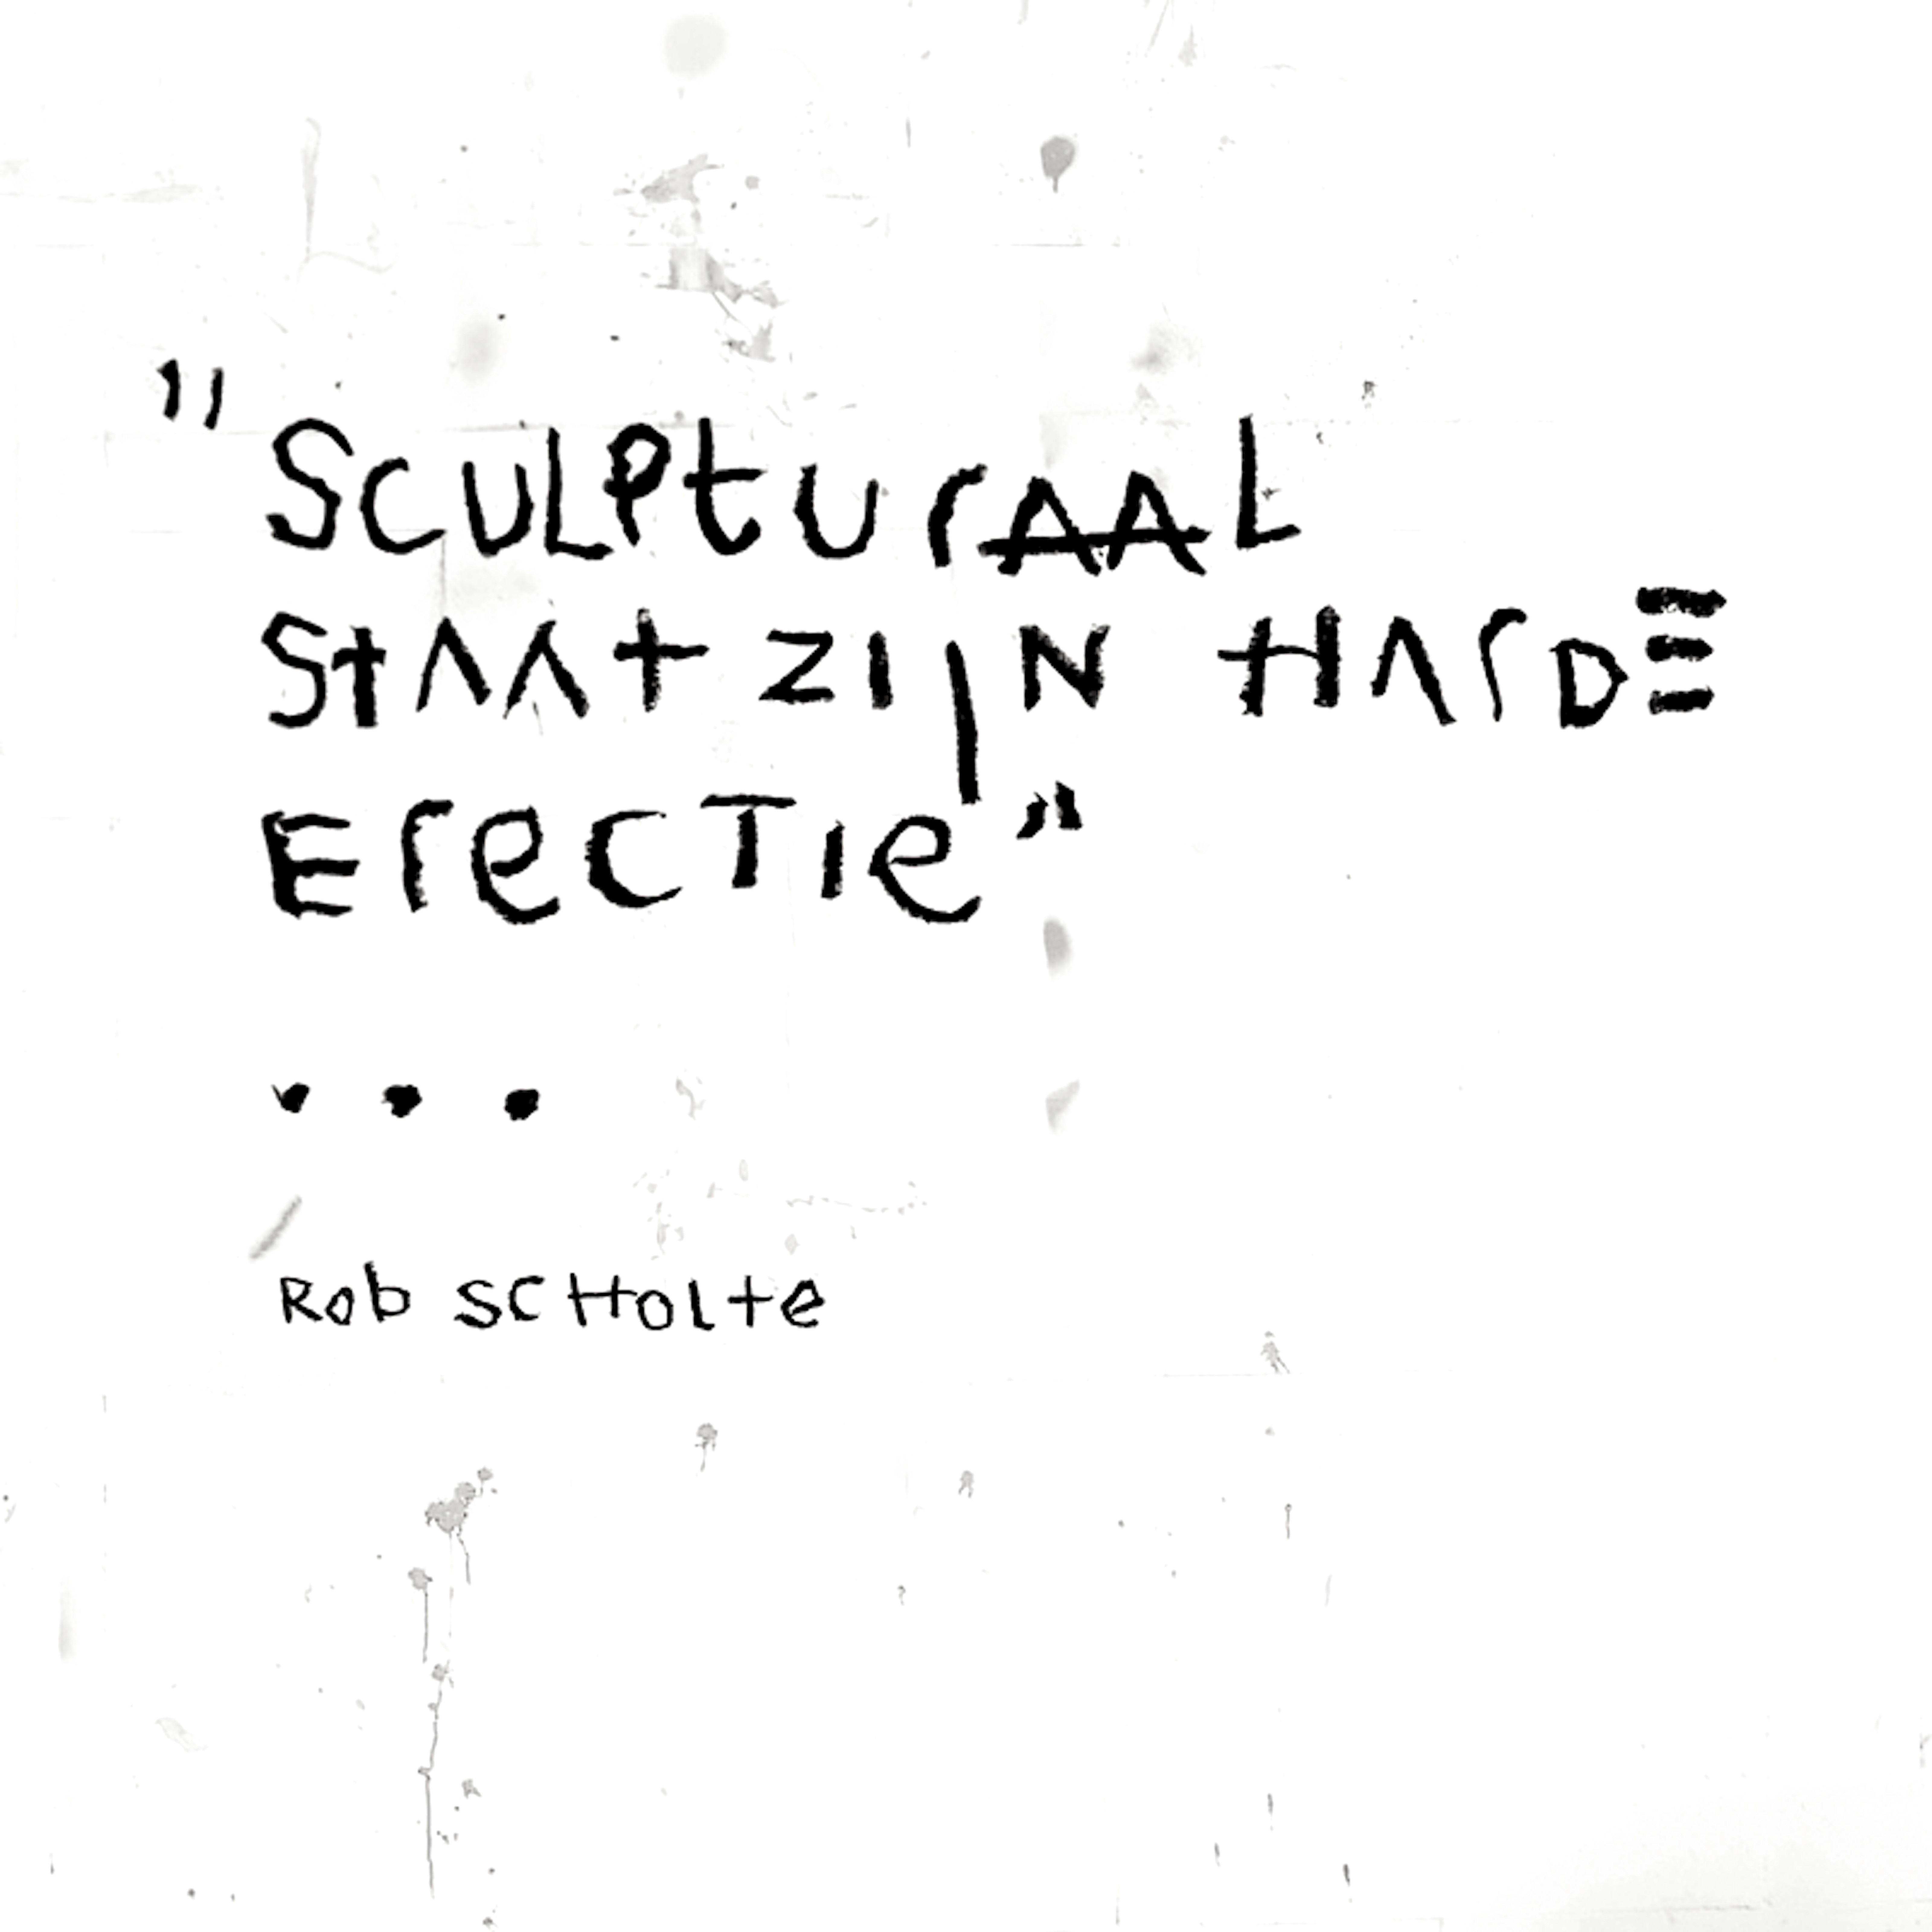 "SCULPturAAL
StAAt ZIJN HArDE
ErecTIe"
...
Rob ScHolte